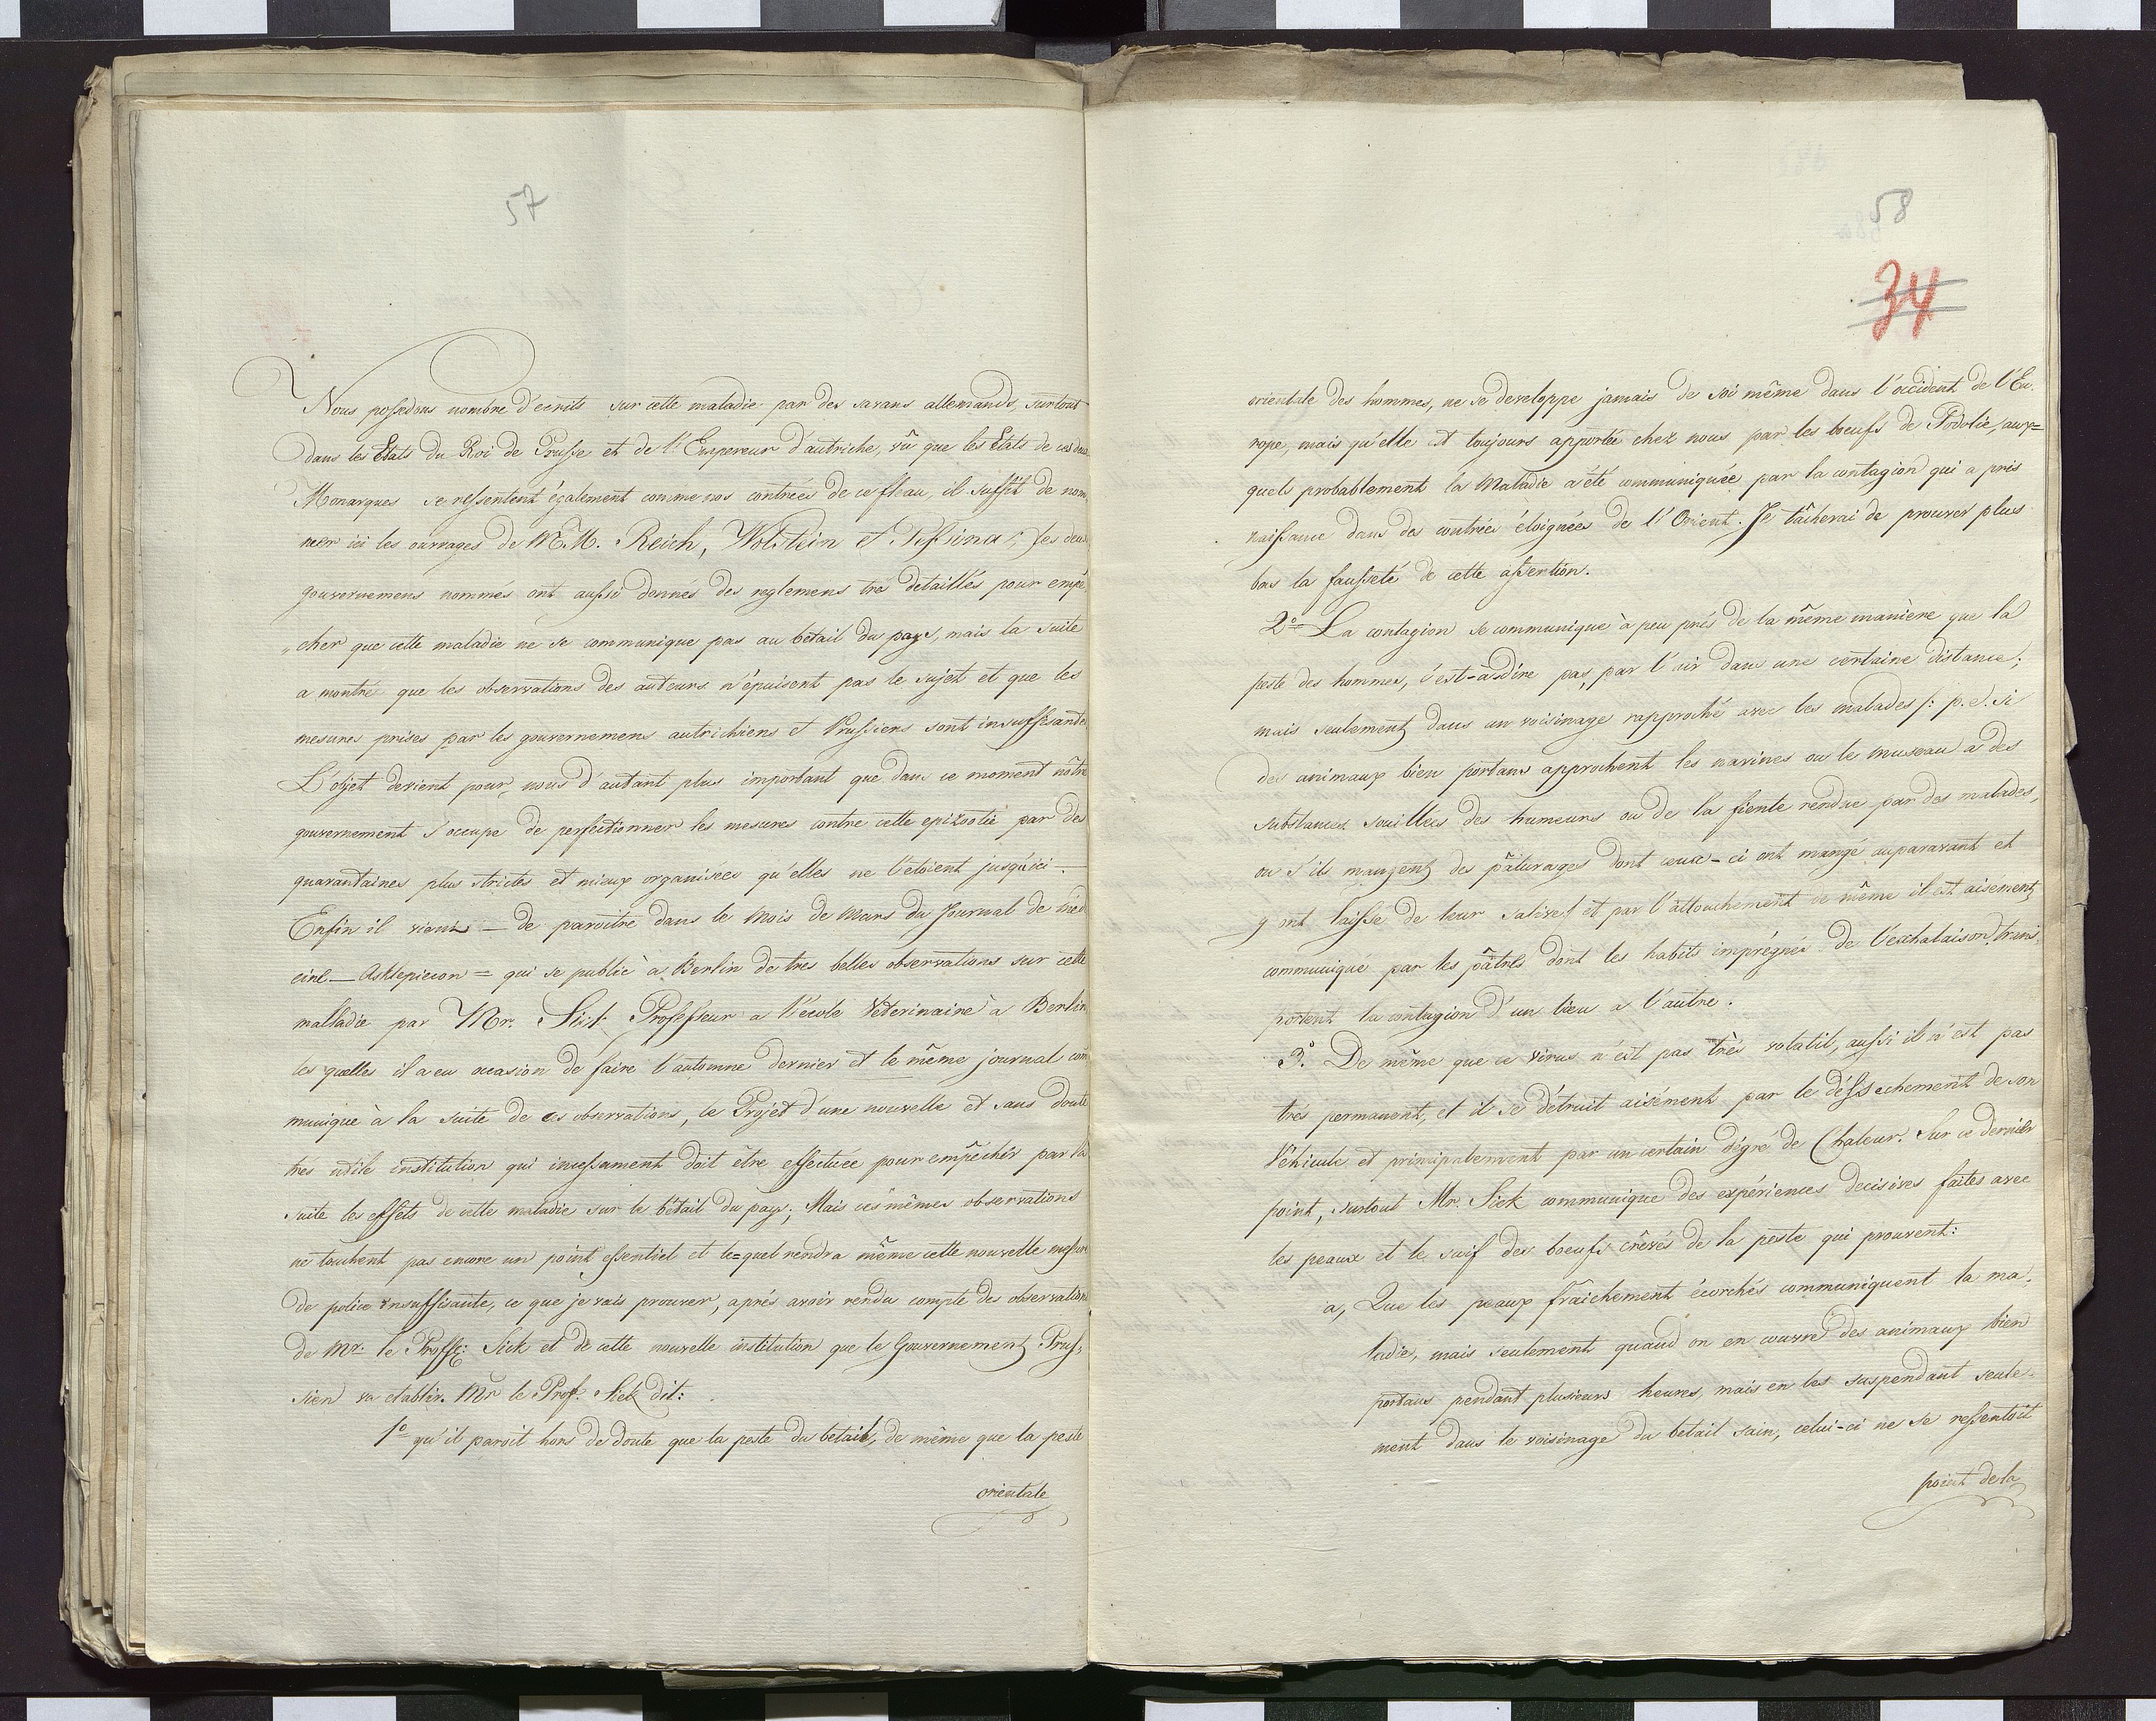 57
Nous possedons nombre d'ecrits sur cette maladie par des savans allemands, surtout
dans les Etats du Roi de Prusse et de l'Empereur d'autriche, vû que les Etats de ces deux
Monarques se ressentent également comme nos contrées de ce fleau, il suffit de nom
mer ici les ouvrages de M.M. Reich, Wolstein et Pessina; les deux
gouvernemens nommés ont aussi donnés des reglemens trés detaillés pour empê
„cher que cette maladie ne se communique pas au bétail du pays, mais la suite
a montré que les observations des auteurs n'épuisent pas le sujet et que les
mesures prises par les gouvernemens autrichiens et Prussiens sont insuffisandes
L'objet devient pour nous d'autant plus important que dans ce moment nôtre
gouvernement s'occupe de perfectionner les mesures contre cette epizootie par des
quarantaines plus strictes et mieux organisées qu'elles ne l'etoient jusqu'ici —
Enfin il vient — de paroitre dans le Mois de Mars du Journal de méd
cine — Asklepieion = qui se publie à Berlin de tres belles observations sur cette
malladie par Mr. Sick Professeur a l'école Veterinaire à Berlin
les quelles il a eu occasion de faire l'automne dernier et le même journal com
munique à la suite de ces observations, le Projet d'une nouvelle et sans doute
trés utile institution qui incessament doit être effectuée pour empêchér par la
suite les effets de cette maladie sur le bétail du pays; Mais ces mêmes observations
ne touchent pas encore un point essentiel et le=quel rendra même cette nouvelle mesure
de police insuffisante, ce que je vais prouver, aprés avoir rendu compte des observations
de Mr. le Proffs: Sick et de cette nouvelle institution que le Gouvernement Prus=
sien va etablir. Mr le Prof. Sick dit:
1º qu'il paroit hors de doute que la peste du betail, de même que la peste
orientale
58
34
orientale des hommes, ne se developpe jamais de soi même dans l'occident de l'Eu.
rope, mais qu'elle est toujours apportée chez nous par les boeufs de Podolie, aux=
quels probablement la Maladie a été communiquée par la contagion qui a pris
naissance dans des contrées éloignées de l'Orient. Je tâcherai de prouver plus
bas la fausseté de cette assertion.
2º La contagion se communique à peu prés de la même manière que la
peste des hommes, c'est-à-dire pas, par l'air dans une certaine distance;
mais seulement dans un voisinage rapproché avec les malades /: p. e. si
des animaux bien portans approchent les narines ou le museau à des
substances souillées des humeurs ou de la fiente rendue par des malades,
ou s'ils mangent des pâturages dont ceux-ci ont mangé auparavant et
y ont laisse de leur salive/ et par l'attouchement de même il est aisément
communiqué par les pâtres dont les habits imprégnés de l'exhalaison trans
portent la contagion d'un lieu a l'autre.
3º De même que ce virus n'est pas très volatil, aussi il n'est pas
trés permanent, et il se détruit aisément par le déssechement de son
Véhicule et principalement par un certain dégré de Chaleur. Sur ce dernier
point, surtout Mr. Sick communique des expériences decisives faites avec
les peaux et le suif des boeufs crêvés de la peste qui prouvent:
a, Que les peaux fraichement écorchés communiquent la ma.
ladie, mais seulement quand on en couvre des animaux bien
portans pendant plusieurs heures, mais en les suspendant seule.
ment dans le voisinage du betail sain, celui-ci ne se ressentoit
point de la